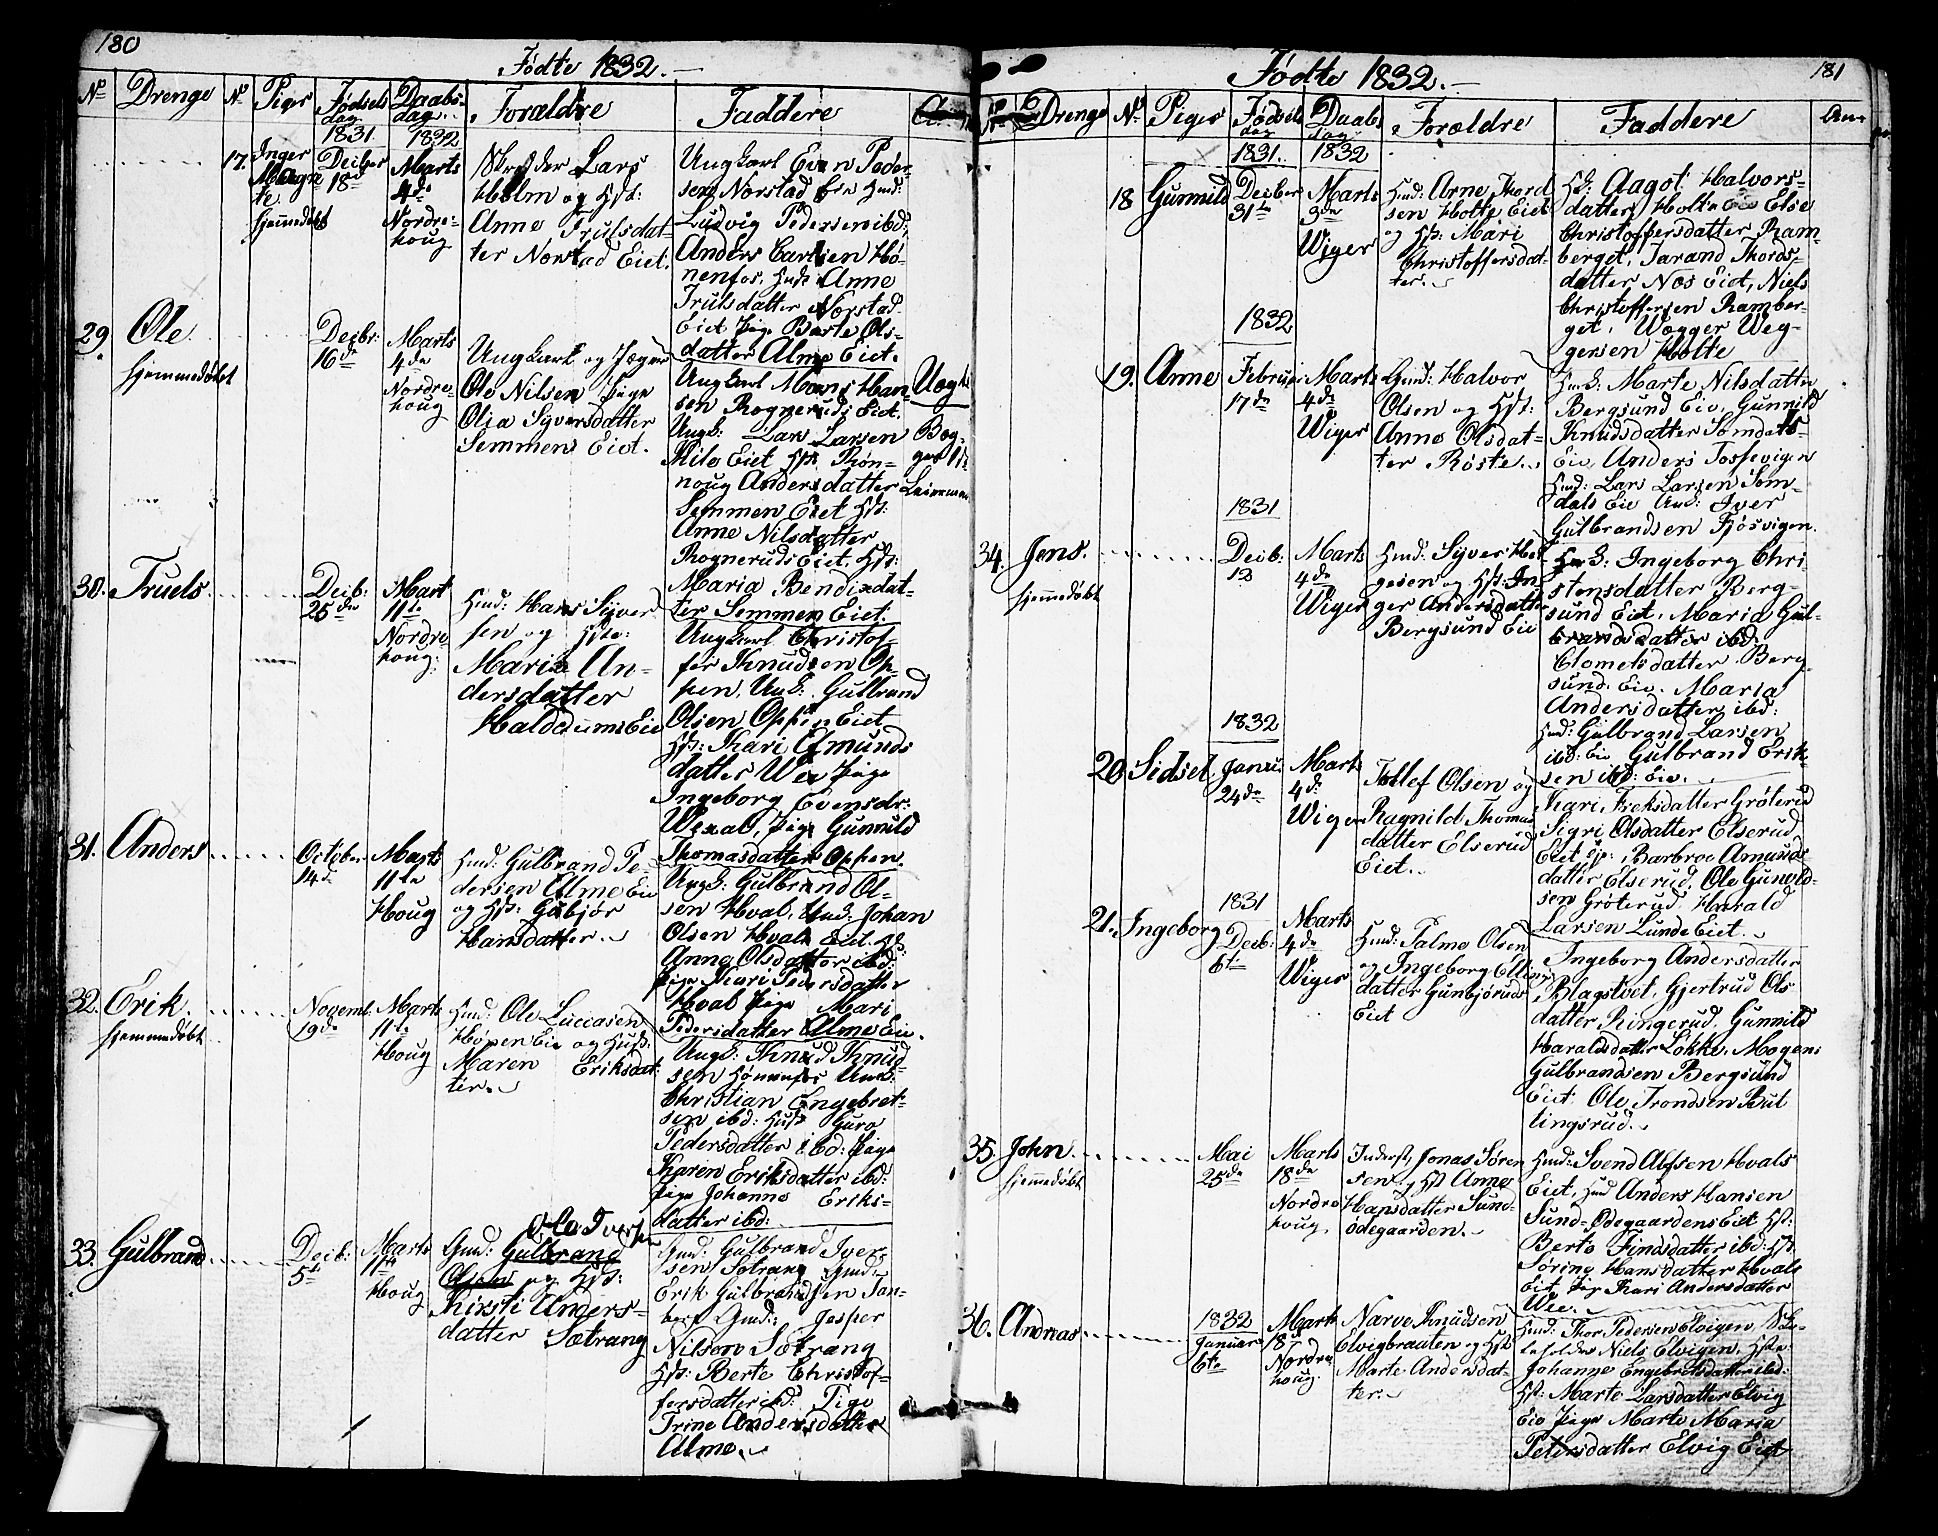 180
Fødte 1832.
No
Drenge
No
Piger
Fødsels
dag
Daabs-
dag
Forældre
Faddere
1831
1832
17.
Inger
Magre
te
hjemmedøbt
Decber
18de
Marts
4de
Nordre-
houg
Lars
Holm og Hst:
Anne Trulsdat-
ter Norstad Eiet.
Ungkarl Even Peder-
sen Norstad
Ludvig Pedersen ibd:
Anders Carlsen Hø-
nenfos, Anne
Trulsdatter Norstad
Eiet Pige Berte Ols-
datter Alme Eiet.
29.
Ole
hjemmedøbt
Decbr:
16de
Marts
4de
Nordre-
houg
Ungkarl og
Ole Nilsen Pige
Olia Syversdatter
Semmen Eiet.
Ungkarl Mons Han-
sen Rognerud Eiet.
Ungk: Lars Larsen
Eiet Hst: Røn-
noug Andersdatter
Semmen Eiet Hst:
Anne Nilsdatter
Rognerud Eiet. Hst:
Maria Bendixdat-
ter Semmen Eiet.
30.
Truels
Decb:
25de
Mart
11te
Nordre
houg:
Gmd: Hans Syver
sen og Hste:
Maria An-
dersdatter
Haldums Eie
Ungkarl Christof-
fer Knudsen Op-
pen, Ungk: Gulbrand
Olsen Oppen Eiet
Hst: Kari Asmunds
datter Wee Pige
Ingeborg Evensdr:
Wexal, Pige Gunnild
Thomasdatter Oppen.
31.
Anders
October
14de
Marts
11te
Houg
Hmd: Gulbrand Pe-
dersen Alme Eie
og Hst: Gubjør
Hansdatter.
Ungk: Gulbrand Ol-
sen Hval, Ungk: Johan
Olsen Hvals Eiet. Hst:
Anne Olsdatter ibd:
Pige Kari Pedersdatter
Hval Pige Mari
Pedersdatter Alme Eie.
32.
Erik
hjemmedøbt
Novemb
19de
Marts
11te
Houg
Hmd: Ole Luccasen
Eie og Hust:
Maren Eriksdat
ter.
Ungk: Knud Knud-
sen Hønenfos Ungk:
Christian Engebret-
sen ibd: Hust Guro
Pedersdatter ibd: Pige
Karen Eriksdatter ibd:
Pige Johanne Eriks-
datter ibd:
33.
Gulbrand
Decb:
5te
Marts
11te
Houg
Ole Iversen
Gmd: Gulbrand
Olsen og Hst:
Kirsti Anders-
datter Sætrang
Gmd: Gulbrand Iver-
sen Sætrang Gmd:
Erik Gulbrandsen Tan-
berg Gmd: Jesper
Nilsen Sætrang
Hst: Berte Christof-
fersdatter ibd: Pige
Trine Andersdatter
Alme.
181
Fødte 1832.
Drenge
No
Piger
Fødsels
dag
Daabs
dag
Forældre
Faddere
Anm
1831.
1832
18
Gunnild
Decber
31te
Marts
3de
Wiger
Hmd: Arne Thord
sen Holte Eiet
og Hst: Mari
Christoffersdat-
ter.
Aagot Halvors-
datter Holte Eie Else
Christoffersdatter Ram-
berget, Jarand Thords-
datter Næs Eiet, Niels
Christoffersen Ramber-
get, Wegger Weg-
gersen Holte
1832
19.
Anne
Februar
17de
Marts
4de
Wiger
Gmd: Halvor
Olsen og Hst:
Anne Olsdat-
ter Røste.
Marte Nilsdatter
Bergsund Eie, Gunnild
Knudsdatter Somdals-
Eie, Anders Tossevigen
Hmd: Lars Larsen Som-
dals Eie Ungk: Iver
Gulbrandsen Fjøsvigen.
1831
34.
Jens
hjemmedøbt
Decb:
13
Marts
4de
Wiger
Hmd: Syver Hel-
gesen og Hst: In
ger Andersdatter
Bergsund Eie
Ingeborg Chri-
stensdatter Berg-
sund Eiet, Maria Gul-
brandsdatter ibd:
Clomelsdatter Berg-
sund Eie. Maria
Andersdatter ibd:
Hmd: Gulbrand Larsen
ibd: Eie Gulbrand Erik-
sen ibd: Eie.
1832
20.
Sidsel
Janu:
24de
Mart
4de
Wiger
Tollef Olsen og
Ragnild Thomas
datter Elserud
Eiet.
Kari Greksdatter Grøterud
Sigri Olsdatter Elserud
Eiet Barbroe Amunds-
datter Elserud, Ole Gunvold-
sen Grøterud, Harald
Larsen Lunde Eiet.
1831
21.
Ingeborg
Decb:
6te
Marts
4de
Wiger
Hmd: Palme Olsen
og Ingeborg Ellings
datter Gunbjørud
Eiet
Ingeborg Andersdatter
Blagstvet, Gjertrud Ols
datter Ringerud, Gunnild
Haraldsdatter Løkke, Mogens
Gulbrandsen Bergsund
Eiet, Ole Trondsen But
tingsrud.
35.
John
hjemmedøbt
Mai
25de
Marts
18de
Nordre
houg.
Inderst, Jonas Søren
sen og Hst Anne
Hansdatter Sund-
ødegaarden.
Hmd: Svend Alfsen Hvals
Eiet, Hmd Anders Hansen
Sund-Ødegaardens Eiet Hst:
Berte Findsdatter ibd: Hst
Søring Hansdatter Hvals
Eiet Pige Kari Andersdatter
Wee.
36.
Andreas
1832
Januar
6te
Marts
18de
Nordre
houg.
Narve Knudsen
Elvigbraaten og Hst
Marte Andersdat-
ter.
Hmd: Thor Pedersen Elvigen,
Niels Elvigen, Hste:
Johanne Engebretsdatter ibd:
Hst: Marte Larsdatter Elvig
Eie Pige Marte Maria
Petersdatter Elvig Eiet